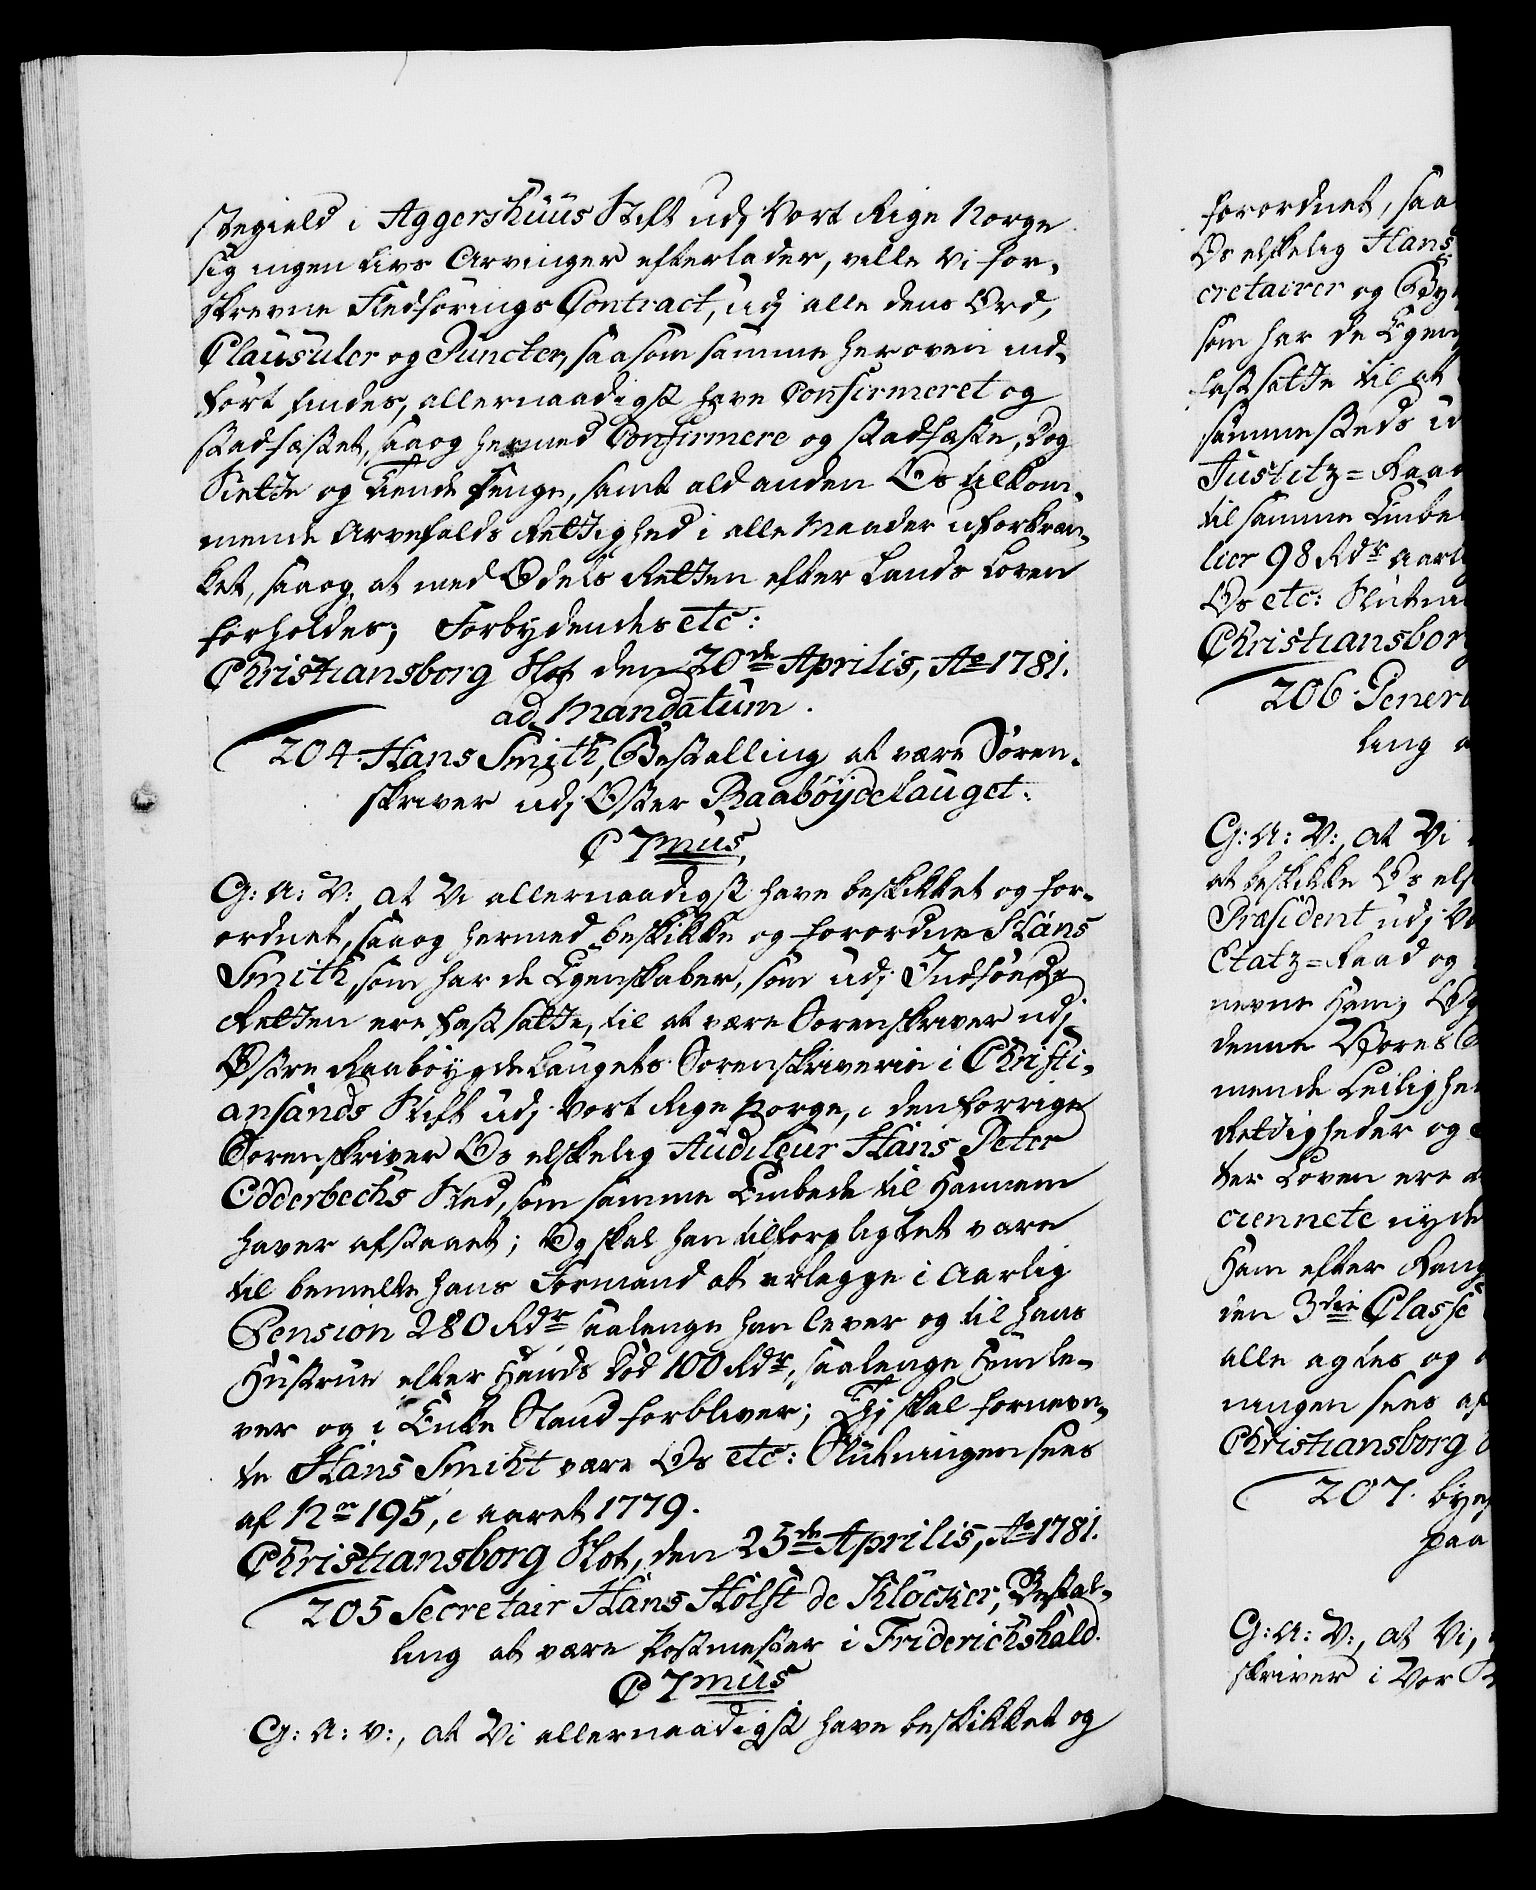 stegield i Aggershuus Stift udj Vort Rige Norge
sig ingen Livs Arvinger efterlader, ville Vi for-
skrevne Fledførings Contract, udj alle dens Ord,
Clausuler og Puncter, saasom samme her oven ind-
ført findes, allernaadigst have Confirmeret og
stadfæstet, saa og hermed Confirmere og stadfæste, Dog
Siette og Tiende Penge, samt ald anden Os tilkom-
mende Arvefalds Rettighed i alle Maader uforkræn-
ket, saa og, at med Odels Retten efter Lands Loven
forholdes; Forbydendes etc:
Christiansborg Slot den 20de Aprilis, Ao 1781.
ad Mandatum.
204. Hans Smith, Bestalling at være Soren-
skriver udj Oster Raabøydelauget.
C 7mus,
G: A: V:, at Vi allernaadigst have beskikket og for-
ordnet, saa og hermed beskikke og forordne Hans
Smith, som har de Egenskaber, som udj Indføds
Retten ere fastsatte, til at være Sorenskriver udj
Østre Raabøygdelaugets Sorenskriverie i Christi-
ansands Stift udj Vort Rige Norge, i den forrige
Sorenskriver Os elskelig Auditeur Hans Peter
Odderbechs Sted, som samme Embede til Hannem
haver afstaaet; Og skal han tilforpligtet være
til bemelte hans Formand at erlegge i Aarlig
Pension 280 Rdr saalenge han lever og til hans
Hustrue efter Hands Død 100 Rdr, saalenge Hun le-
ver og i Enke Stand forbliver; Thj skal fornevn-
te Hans Smiht være Os etc: Slutningen sees
af No 195, i aaret 1779.
Christiansborg Slot, den 25de Aprilis, Ao 1781.
205 Secretair Hans Holst de Klöcker, Bestal-
ling at være Postmester i Friderichshald.
C 7mus
G: A: V:, at Vi allernaadigst have beskikket og
forordnet, saa
Os elskelig Hans
cretairer og By
som har de Egen
fastsatte til at
sammesteds u
Justitz=Raa
til samme Embe
lier 98 Rdr aarl
Os etc: Slutni
Christiansborg
206. Gener
ling
G: A: V:, at Vi
at beskikke Os els
Præsident udj Vo
Etatz=Raad og
nevne Ham; Og
denne Vores
mende Leilighe
Rettigheder og
ter Loven ere
ciennete nyde
Ham efter Rang
den 3die Classe
alle agtes og
ningen sees af
Christiansborg
207. bye
paa
G: A: V:, at Vi,
skriver i Vor